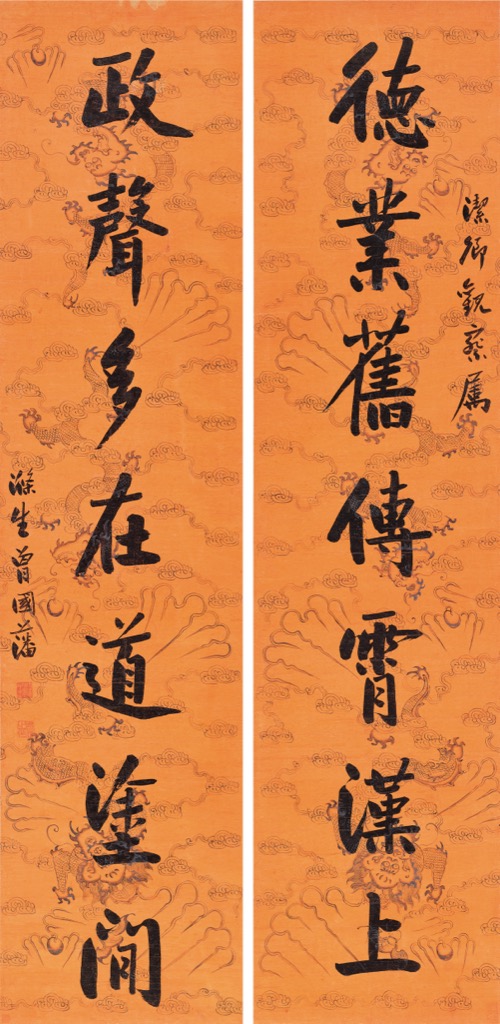 潔卿觀察属
德業舊傳霄漢上
政聲多在道塗間
滌生曾國藩